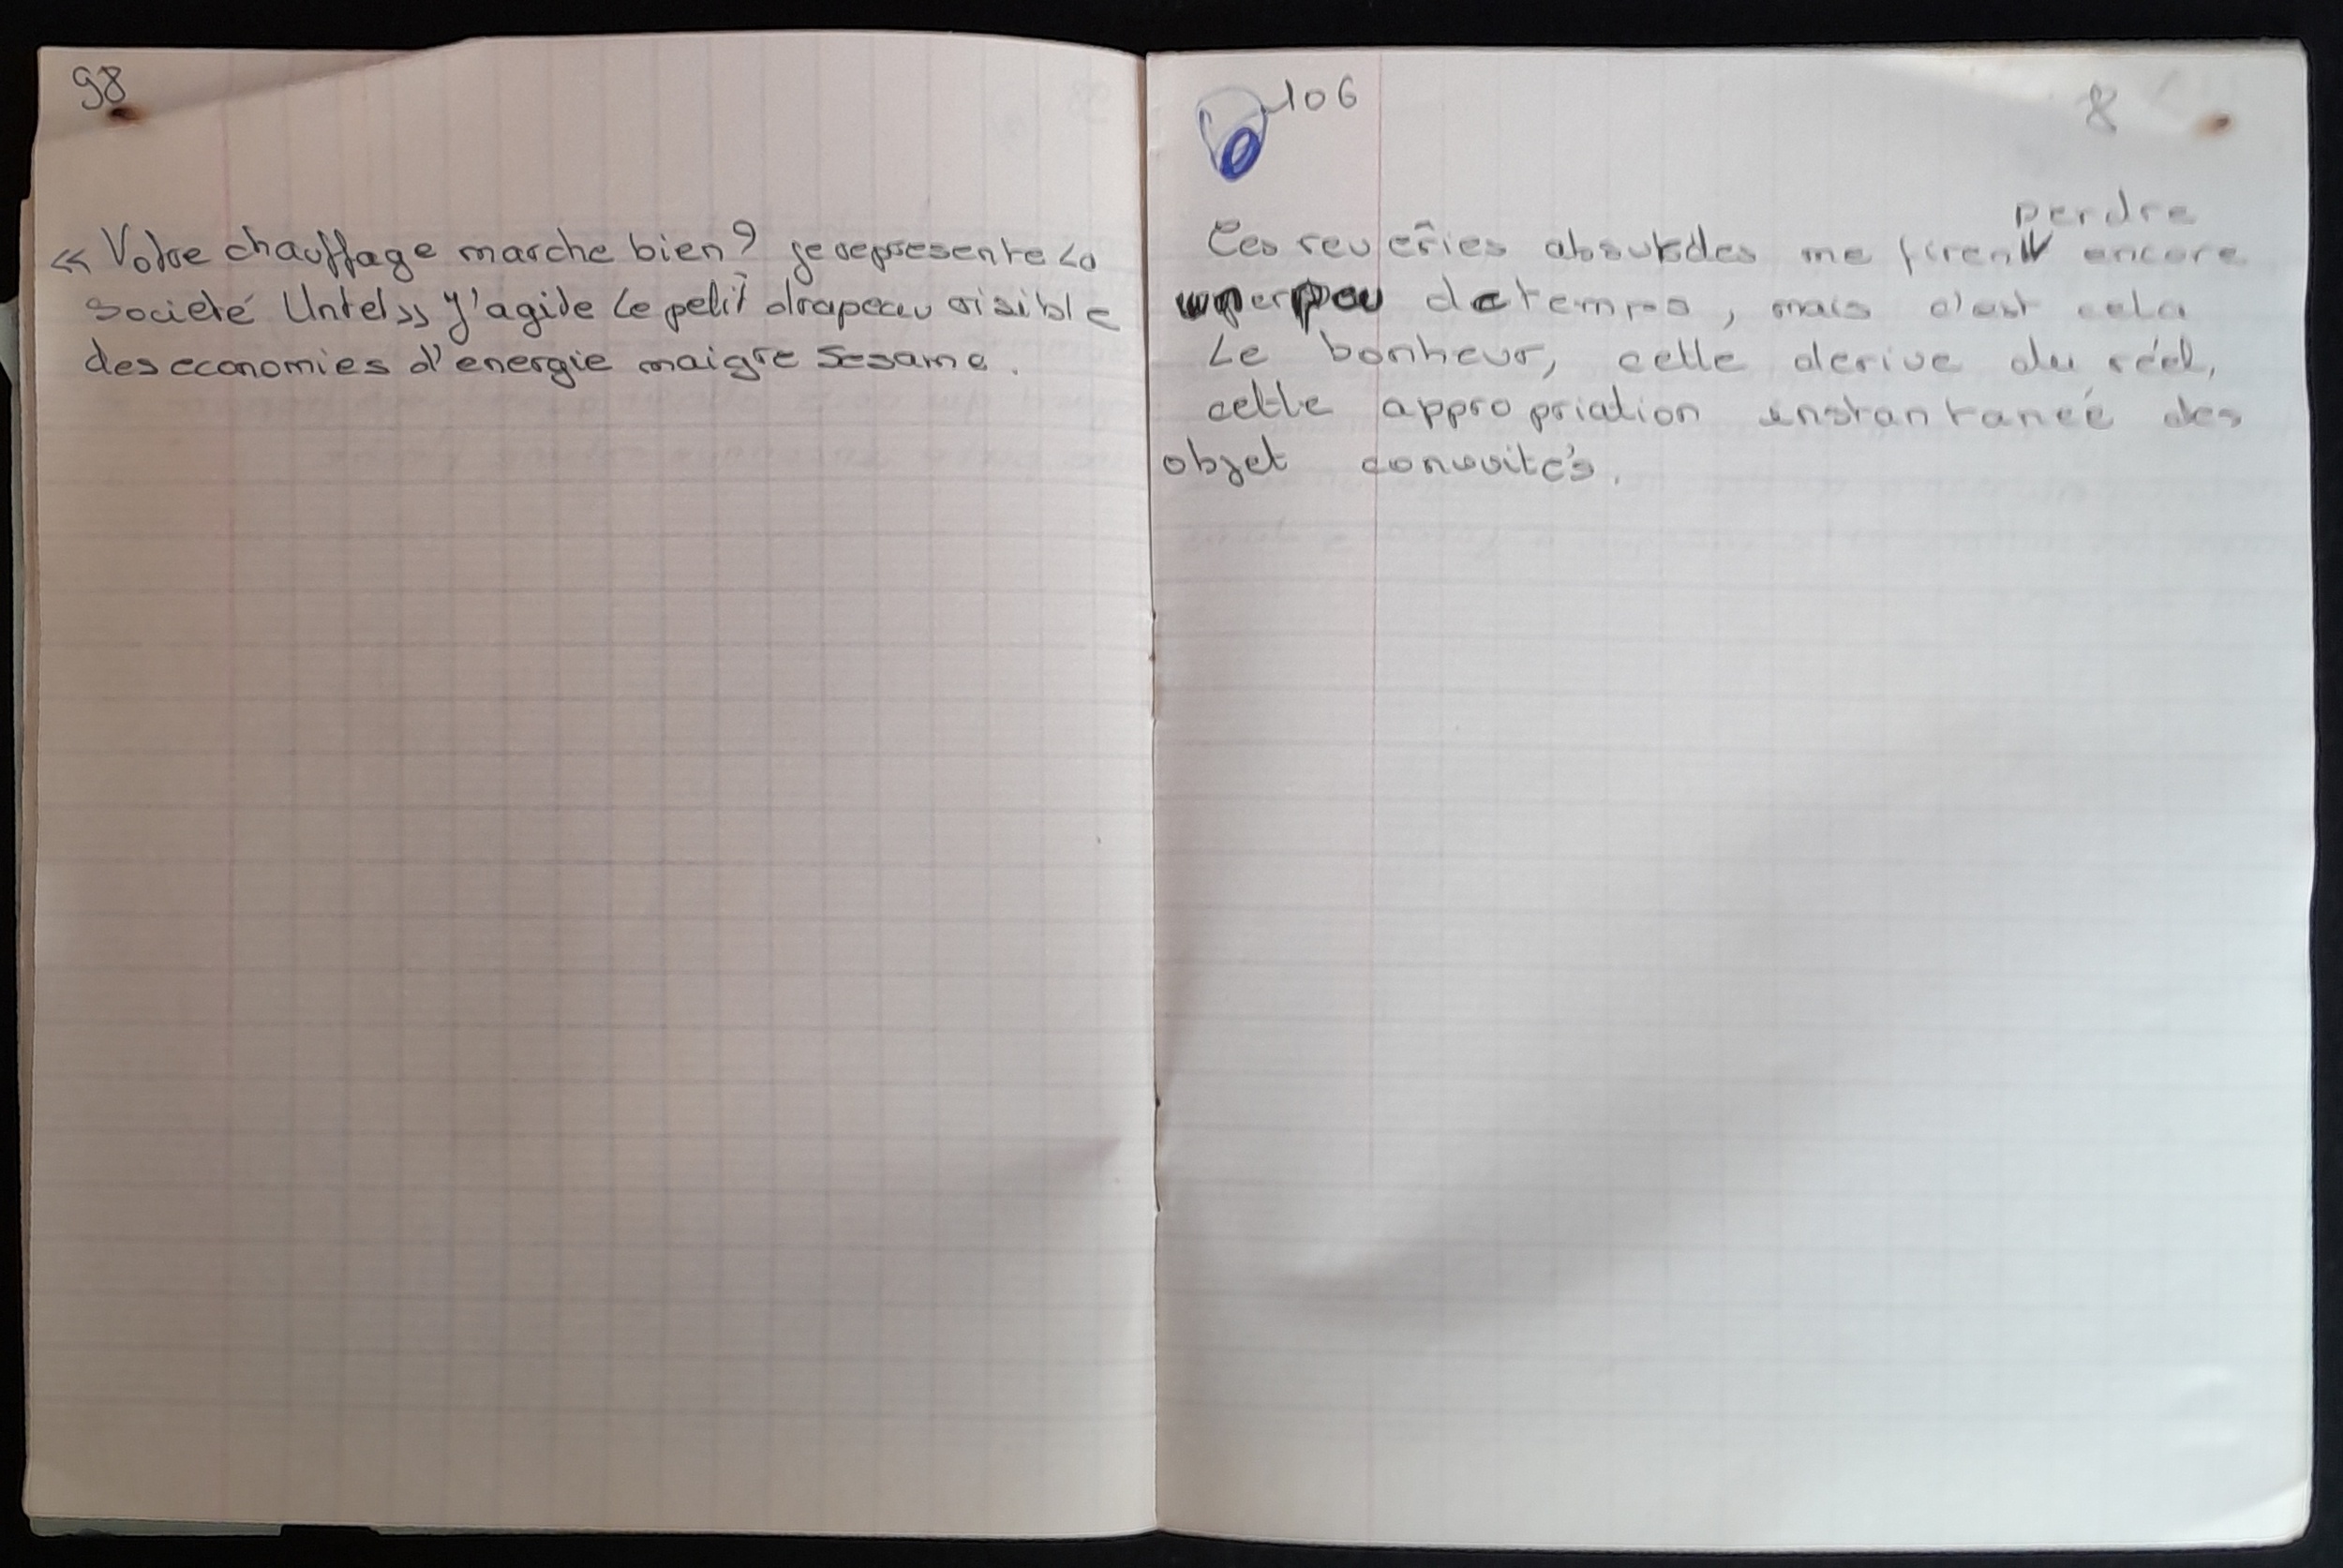 98
« Votre chauffage marche bien? je represente La
Societé Untel» J'agite le petit drapeau visible
des economies d'energie maigre Sesame.
106
8
perdre
Ces reuêries absurdes me firent encore
un peu de temps, mais c'est cela
Le bonheur, cette derive du réel,
cette appropriation instantaneé des
objet convoités.